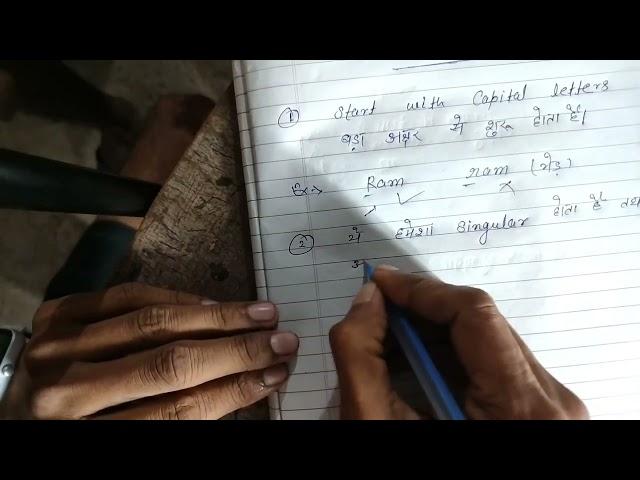 ① Start with Capital letters
बड़ा अक्षर से शुरू होता है।
Ex→ Ram ✓ ram (भेड़) ×
② ये हमेशा singular होता है तथा